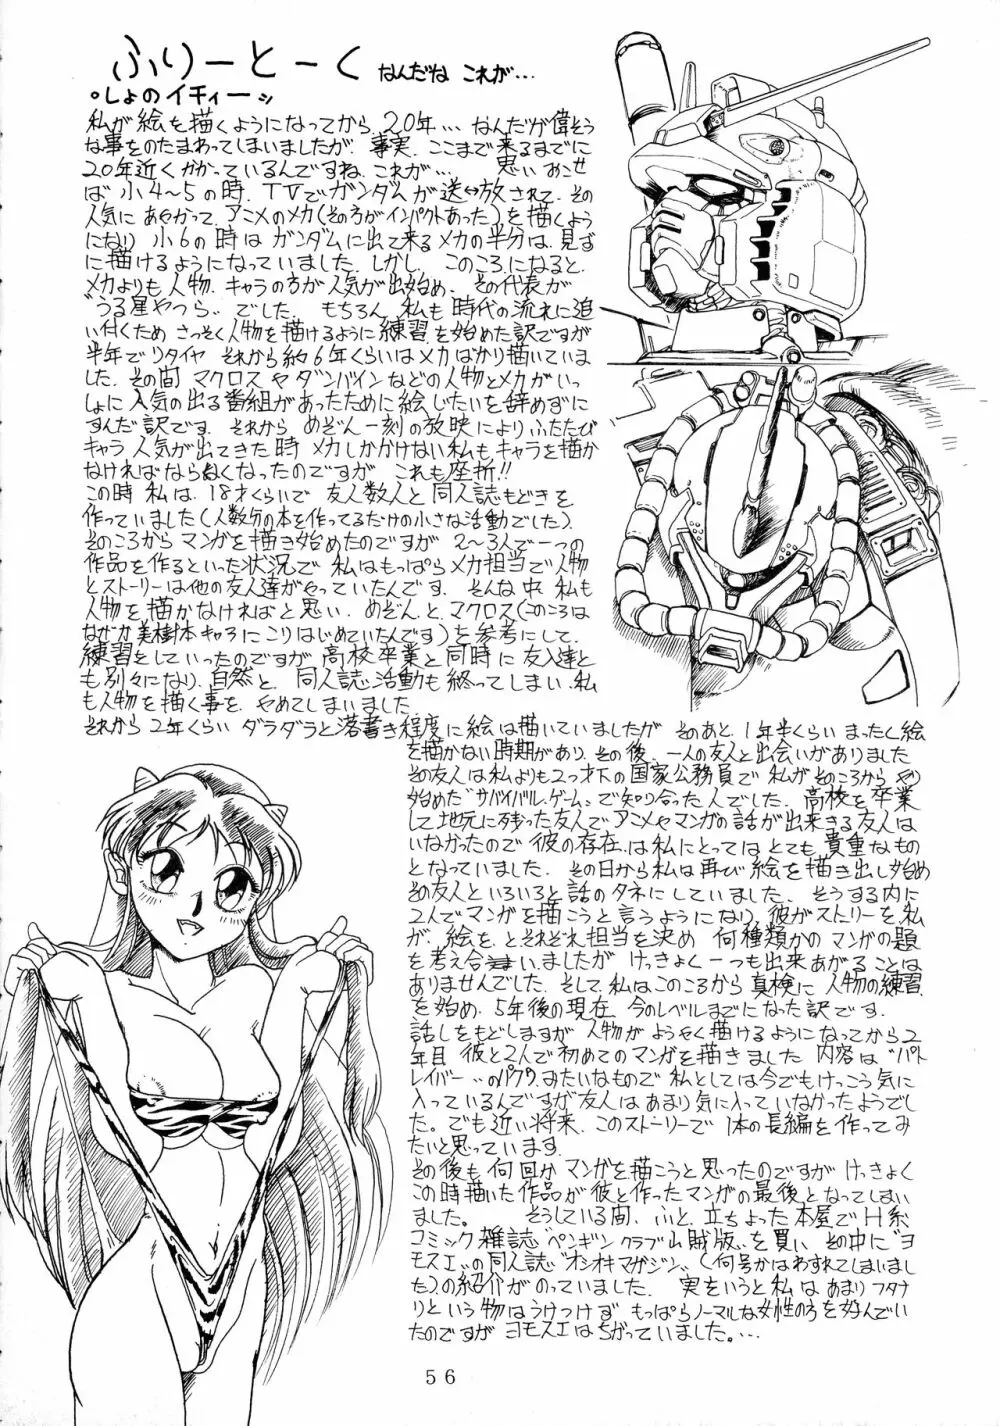 ふりーとーく なんだね これが…
○しょのイチィーッ
私が絵を描くようになってから20年… なんだが偉そう
な事をのたまわってしまいましたが、事実、ここまで来るまでに
20年近くかかっているんですね、これが… 思いおこせ
ば小4〜5の時、TVでガンダムが送↔放されて、その
人気にあやかって、アニメのメカ(その方がインパクトあった)を描くよう
になり 小6の時は ガンダムに出て来るメカの半分は、見ず
に描けるようになっていました。しかし、このころになると、
メカよりも人物、キャラの方が人気が出始め、その代表が
〝うる星やつら〟でした。 もちろん、私も時代の流れに追
い付くため さっそく人物を描けるように練習を始めた訳ですが
半年でリタイヤ それから約6年くらいはメカばかり描いていま
した。その間 マクロスやダンバインなどの人物とメカがいっ
しょに人気の出る番組があったために絵じたいを辞めずに
すんだ訳です。それから めぞん一刻の放映によりふたたび
キャラ人気が出てきた時 メカしかかけない私もキャラを描か
なければならぬくなったのですが これも座折!!
この時 私は、18才くらいで 友人数人と同人誌もどきを
作っていました(人数分の本を作ってるだけの小さな活動でした)。
そのころから マンガを描き始めたのですが 2〜3人で一つの
作品を作るといった状況で 私はもっぱらメカ担当で人物
とストーリーは他の友人達がやっていたんです。そんな中、私も
人物を描かなければと思い、めぞん、と、マクロス(このころは
なぜか美樹本キャラにこりはじめていたんです)を参考にして、
練習をしていったのですが 高校卒業と同時に友人達と
も別々になり、自然と、同人誌活動も終ってしまい、私
も人物を描く事を、やめてしまいました
それから2年くらい ダラダラと落書き程度に絵は描いていましたが そのあと、1年半くらい まったく絵
を描かない時期があり、その後、一人の友人と出会いがありました
その友人は私よりも2つ才下の国家公務員で 私がそのころから や
始めた〝サバイバル、ゲーム〟で知り合った人でした。高校を卒業
して地元に残った友人でアニメやマンガの話が出来きる友人は
いなかったので 彼の存在は私にとってはとても貴重なもの
となっていました。その日から私は再び絵を描き出し始め
その友人といろいろと話のタネにしていました。そうする内に
2人でマンガを描こうと言うようになり、彼がストーリーを、私
が、絵を、とそれぞれ担当を決め 何種類かのマンガの題
を考え合いましたが けっきょく一つも出来あがることは
ありませんでした。そして、私はこのころから真検に人物の練習
を始め、5年後の現在、今のレベルまでになった訳です。
話しをもどしますが 人物がようやく描けるようになってから2
年目 彼と2人で初めてのマンガを描きました 内容は〝パト
レイバー〟のパクりみたいなもので 私としては今でもけっこう気に
入っているんですが友人はあまり気に入っていなかったようでし
た。でも近い将来、このストーリーで1本の長編を作ってみ
たいと思っています。
その後も何回かマンガを描こうと思ったのですが けっきょく
この時描いた作品が彼と作ったマンガの最後となってしまい
ました。 そうしている間、ふと、立ちよった本屋でH系
コミック雑誌〝ペンギンクラブ山賊版〟を買い その中に〝ヨ
モスエ〟の同人誌〝オシオキマガジン〟(何号かはわすれてしまいまし
た)の紹介がのっていました。実をいうと私はあまりフタナ
リという物はうけつけず もっぱらノーマルな女性の方を好んでい
たのですがヨモスエはちがっていました。…
56